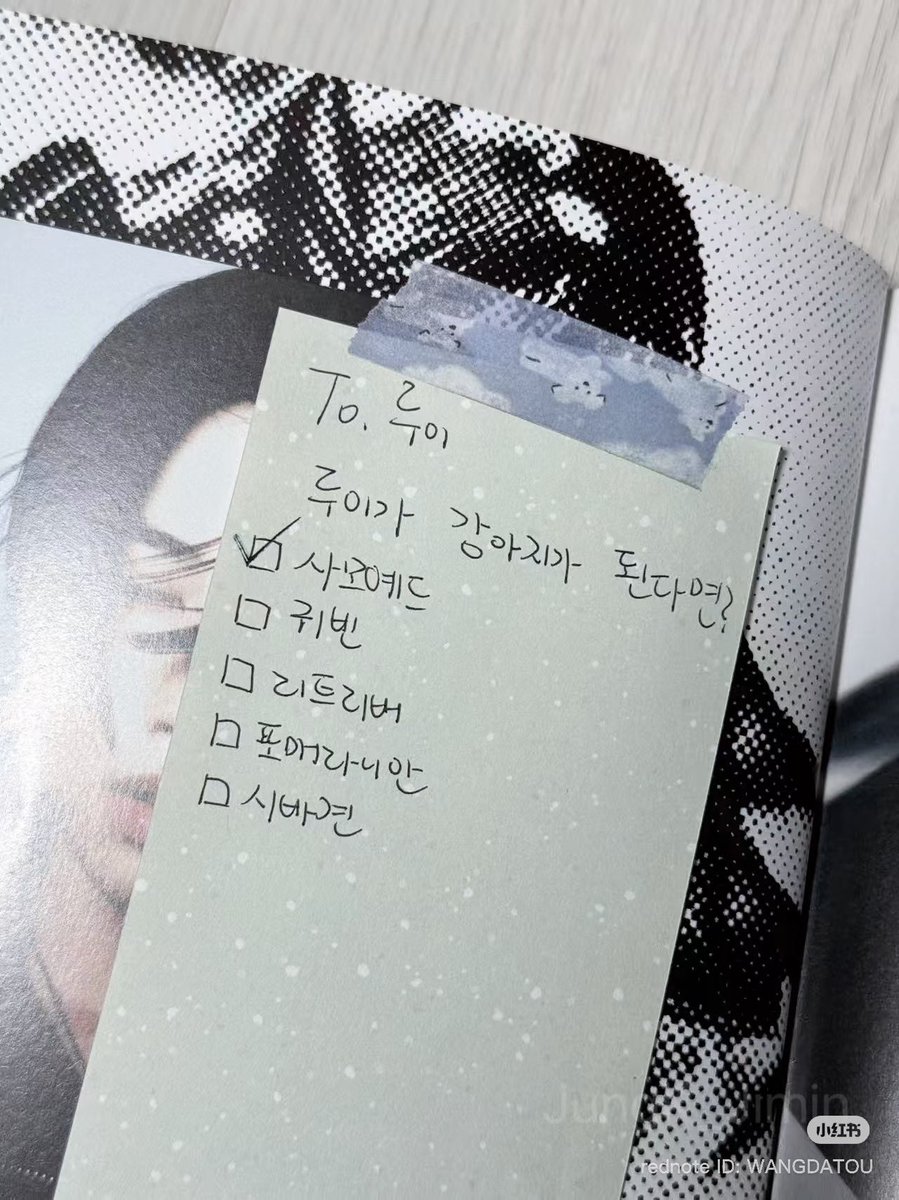 To. 루이
루이가 강아지가 된다면?
☑ 사모예드
☐ 퀴빈
☐ 리트리버
☐ 포메라니안
☐ 시바견
小红书
rednote ID: WANGDATOU